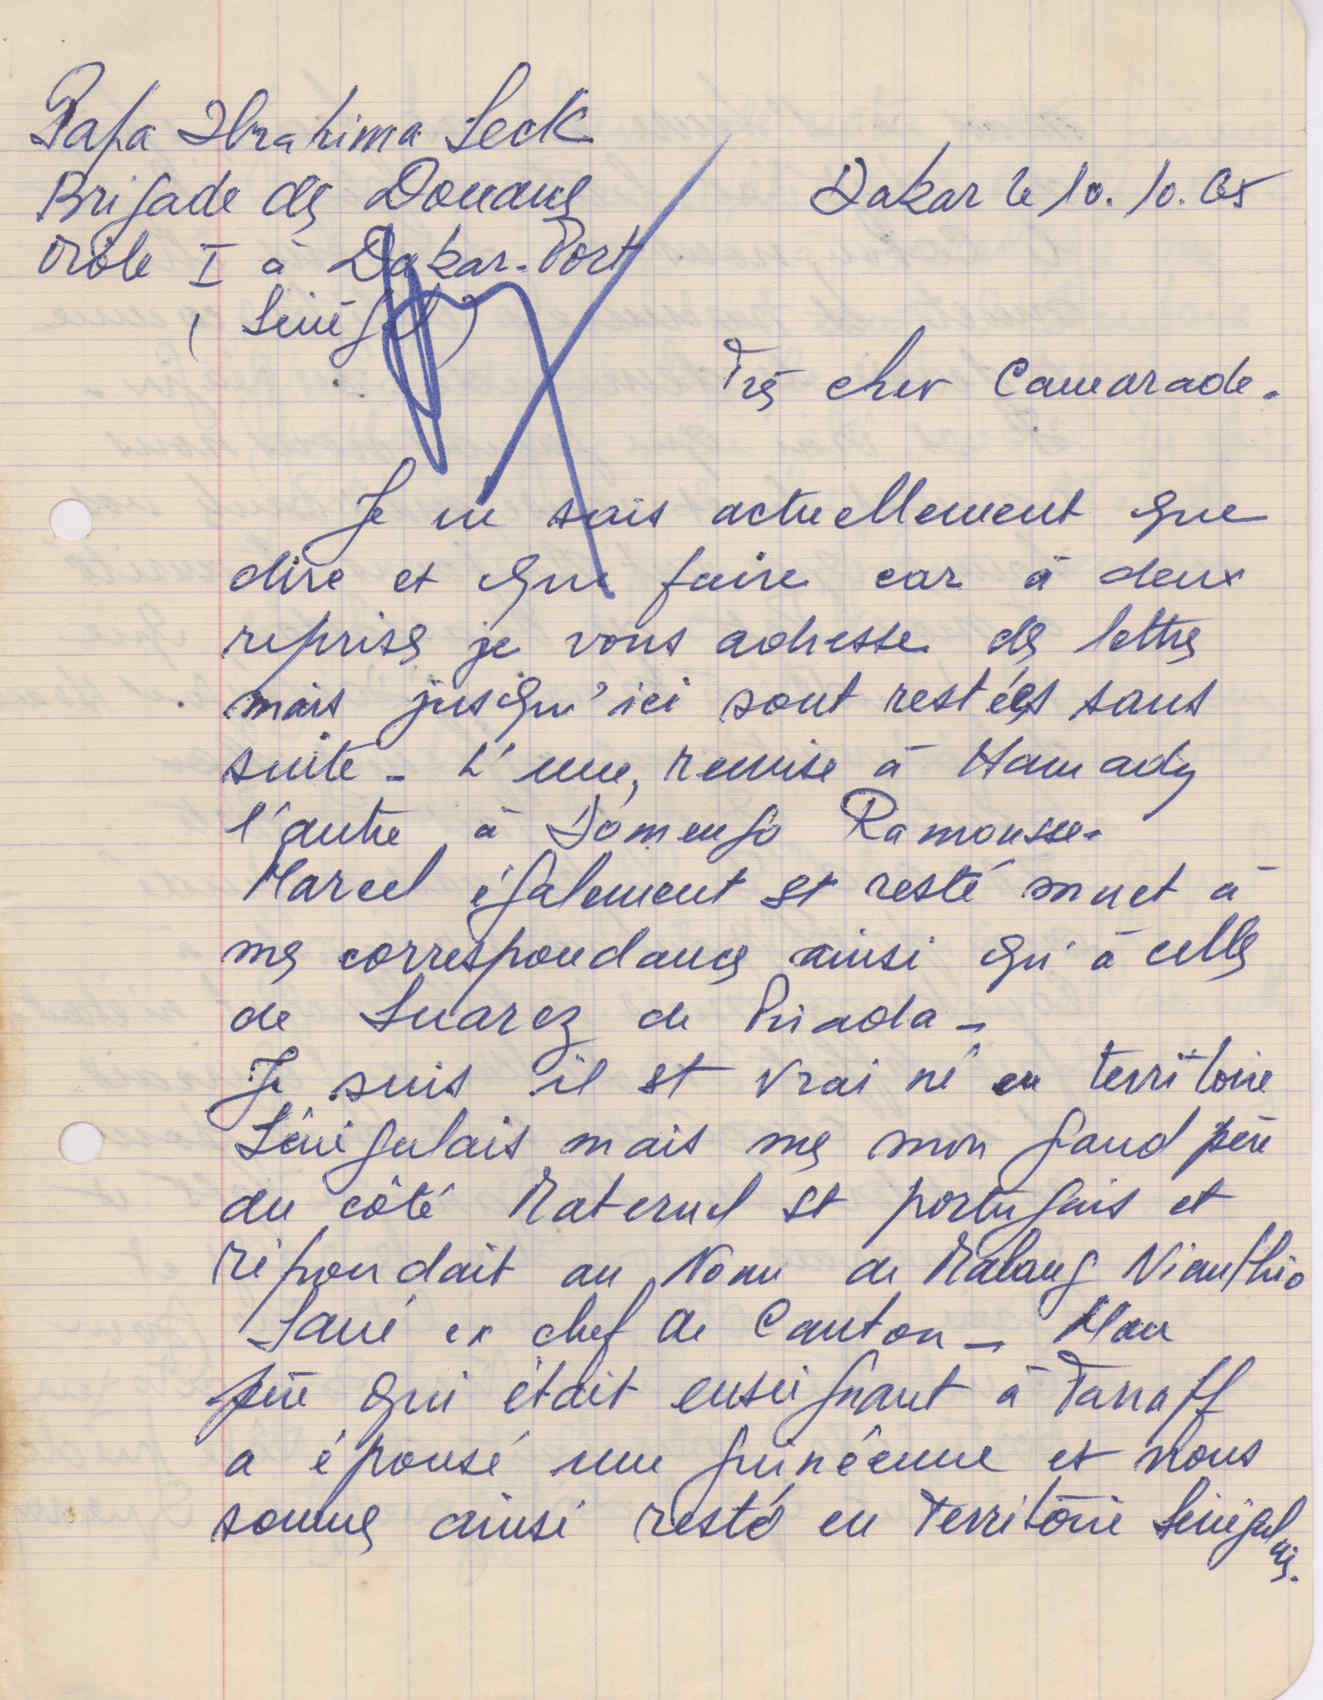 Papa Ibrahima Seck
Brigade des Douanes
Môle I à Dakar-Port
(Sénégal)
Dakar le 10.10.65
Très cher Camarade.
Je ne sais actuellement que
dire et que faire car à deux
reprises je vous adresse des lettres
mais jusqu'ici sont restées sans
suite - L'une, remise à Hamady
l'autre à Domengo Ramousse.
Marcel également est resté muet à
mes correspondances ainsi qu'à celles
de Suarez de Pirada -
Je suis il est vrai né en territoire
Sénégalais mais mes mon gand père
du côté Maternel est portugais et
répondait au Nom de Malang Nianthio
Sané ex chef de Canton - Mon
père qui était enseignant à Tanaff
a épousé une guinéenne et nous
sommes ainsi resté en Territoire Sénégalais.